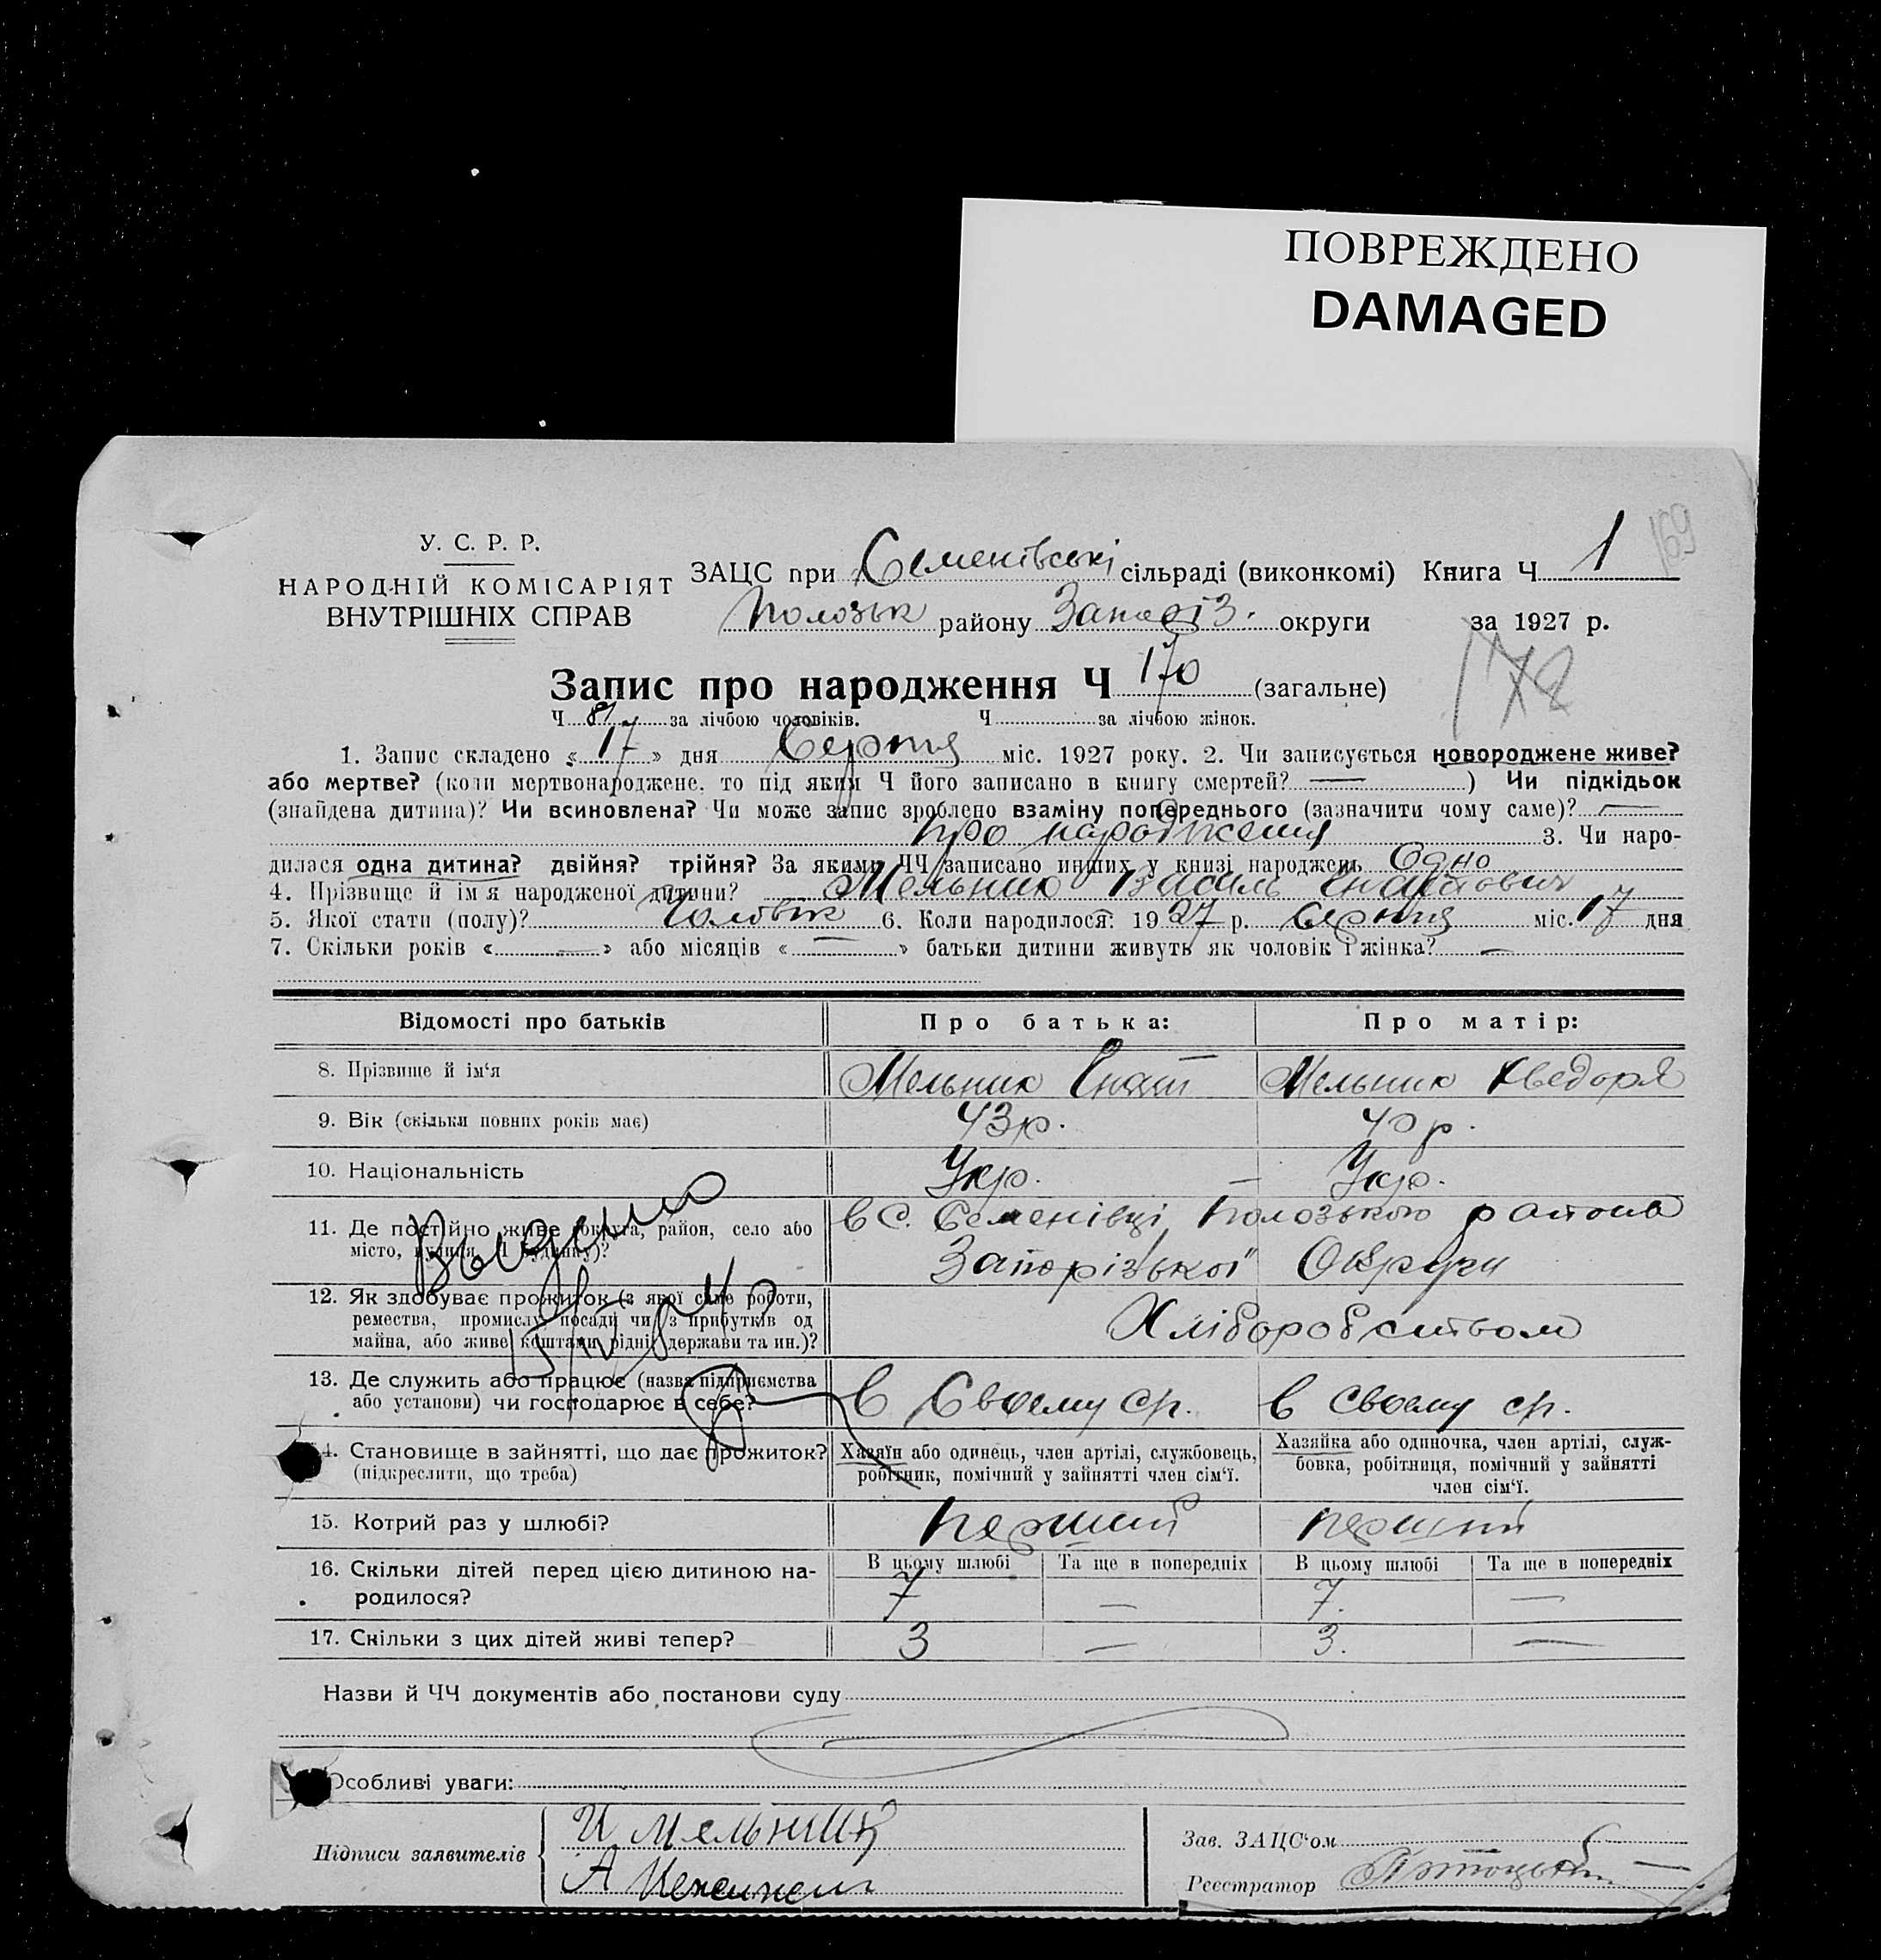 ПОВРЕЖДЕНО
DAMAGED
169
У. С. Р. Р.
НАРОДНІЙ КОМІСАРІЯТ
ВНУТРІШНІХ СПРАВ
ЗАЦС при Семенівські сільраді (виконкомі) Книга Ч 1
Полозьк району Запоріз. округи за 1927 р.
178
Запис про народження Ч 170 (загальне)
Ч 81 за лічбою чоловіків. Ч за лічбою жінок.
1. Запис складено « 17 » дня Серпня міс. 1927 року. 2. Чи записується новороджене живе?
або мертве? (коли мертвонароджене, то під яким Ч його записано в книгу смертей? — ) Чи підкідьок
(знайдена дитина)? Чи всиновлена? Чи може запис зроблено взаміну попереднього (зазначити чому саме)? —
про народження 3. Чи наро-
дилася одна дитина? двійня? трійня? За якими ЧЧ записано инших у книзі народжень Одно
4. Прізвище й ім'я народженої дитини? Мельник Василь Гнатович
5. Якої стати (полу)? Чоловік 6. Коли народилося: 1927 р. Серпня міс. 17 дня
7. Скільки років « — » або місяців « — » батьки дитини живуть як чоловік і жінка? —
Відомості про батьків Про батька: Про матір:
8. Прізвище й ім'я Мельник Гнат Мельник Хведоря
9. Вік (скільки повних років має) 43 р. 40 р.
10. Національність Укр. — Укр.
11. Де постійно живе (округа, район, село або
місто, вулиця, Ч будинку)?
в с. Семенівці Полозького району
Запорізької Округи
12. Як здобуває прожиток (з якої саме роботи,
ремества, промислу, посади чи з прибутків од
майна, або живе коштами рідні, держави та ин.)?
Хліборобством
13. Де служить або працює (назва підприємства
або установи) чи господарює в себе?
В Своему ср. в своему ср.
14. Становище в зайнятті, що дає прожиток?
(підкреслити, що треба)
Хазяїн або одинець, член артілі, службовець,
робітник, помічний у зайнятті член сім'ї.
Хазяйка або одиночка, член артілі, служ-
бовка, робітниця, помічний у зайнятті
член сім'ї.
15. Котрий раз у шлюбі? перший перший
16. Скільки дітей перед цією дитиною на-
родилося?
В цьому шлюбі Та ще в попередніх В цьому шлюбі Та ще в попередніх
7 — 7. —
17. Скільки з цих дітей живі тепер? 3 — 3. —
Назви й ЧЧ документів або постанови суду
Особливі уваги:
Підписи заявителів
И Мельник
Зав. ЗАЦС'ом
Реєстратор